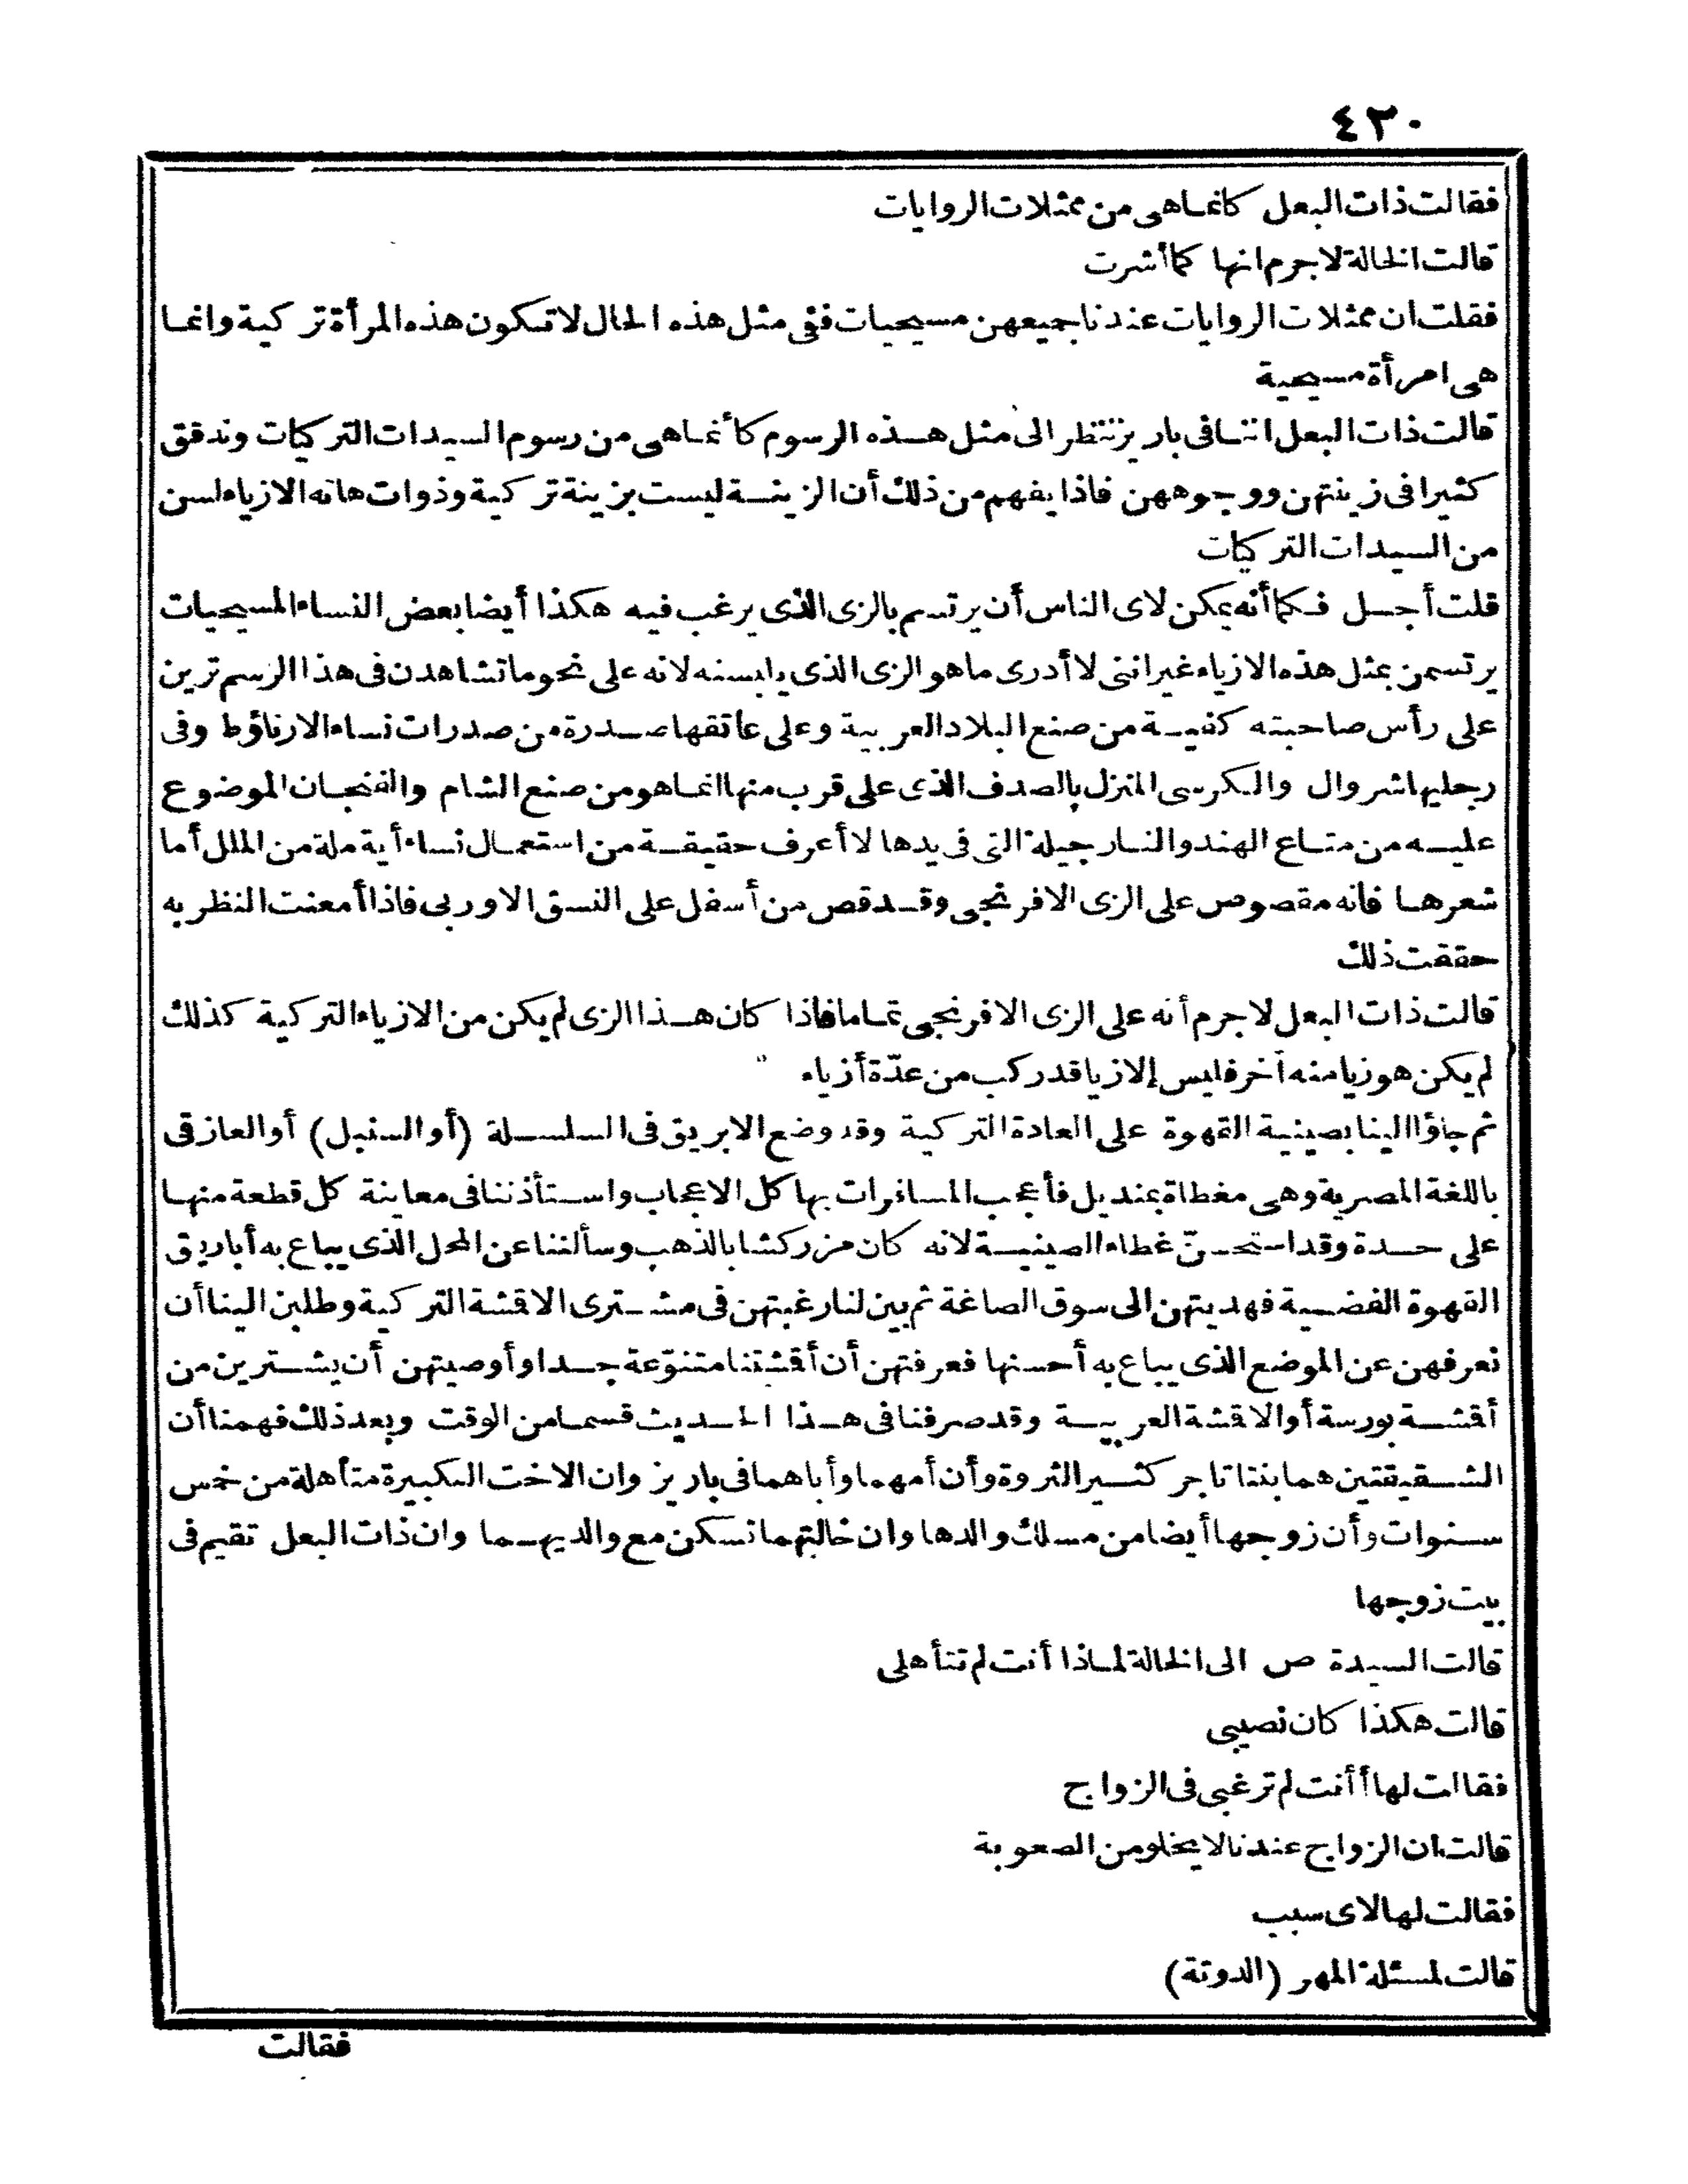 ٤٣٠
فقالت ذات البعل كانما هى من ممثلات الروايات
قالت الخالة لاجرم انها كما أشرت
فقلت ان ممثلات الروايات عندنا جميعهن مسيحيات ففى مثل هذه الحال لا تكون هذه المرأة تركية وانما
هى امرأة مسيحية
قالت ذات البعل اننا فى باريز ننظر الى مثل هذه الرسوم كأنما هى من رسوم السيدات التركيات وندقق
كثيرا فى زينتهن ووجوههن فاذا يفهم من ذلك أن الزينة ليست بزينة تركية وذوات هاته الازياء لسن
من السيدات التركيات
قلت أجل فكما أنه يمكن لاى الناس أن يرتسم بالزى الذى يرغب فيه هكذا أيضا بعض النساء المسيحيات
يرتسمن بمثل هذه الازياء غير اننى لا أدرى ما هو الزى الذى يلبسنه لانه على نحو ما تشاهدن فى هذا الرسم ترين
على رأس صاحبته كفية من صنع البلاد العربية وعلى عاتقها صدرة من صدرات نساء الارناؤط وفى
رجليها شروال والكرسى المنزل بالصدف الذى على قرب منها انما هو من صنع الشام والفنجان الموضوع
عليه من متاع الهند والنارجيلة التى فى يدها لا أعرف حقيقة من استعمال نساء أية ملة من الملل أما
شعرها فانه مقصوص على الزى الافرنجى وقد قص من أسفل على النسق الاوربى فاذا أمعنت النظر به
حققت ذلك
قالت ذات البعل لاجرم أنه على الزى الافرنجى تماما فاذا كان هذا الزى لم يكن من الازياء التركية كذلك
لم يكن هو زيا منه آخر فليس إلا زيا قد ركب من عدّة أزياء
ثم جاؤا الينا بصينية القهوة على العادة التركية وقد وضع الابريق فى السلسلة (أو السنبل) أو العازقى
باللغة المصرية وهى مغطاة بمنديل فأعجب المسافرات بها كل الاعجاب واستأذننا فى معاينة كل قطعة منها
على حدة وقد استحسنّ غطاء الصينية لانه كان مزركشا بالذهب وسألننا عن المحل الذى يباع به أباريق
القهوة الفضية فهديتهن الى سوق الصاغة ثم بين لنا رغبتهن فى مشترى الاقشة التركية وطلبن الينا أن
نعرفهن عن الموضع الذى يباع به أحسنها فعرفتهن أن أقشتنا متنوّعة جدا وأوصيتهن أن يشترين من
أقشة بورسة أو الاقشة العربية وقد صرفنا فى هذا الحديث قسما من الوقت وبعد ذلك فهمنا أن
الشقيقتين هما بنتا تاجر كثير الثروة وأن أمهما وأباهما فى باريز وان الاخت الكبيرة متأهلة من خمس
سنوات وأن زوجها أيضا من مسلك والدها وان خالتهما تسكن مع والديهما وان ذات البعل تقيم فى
بيت زوجها
قالت السيدة ص الى الخالة لماذا أنت لم تتأهلى
قالت هكذا كان نصيبى
فقالت لها أأنت لم ترغبى فى الزواج
قالت ان الزواج عندنا لا يخلو من الصعوبة
فقالت لها لاى سبب
قالت لمسئلة المهر (الدوتة)
فقالت